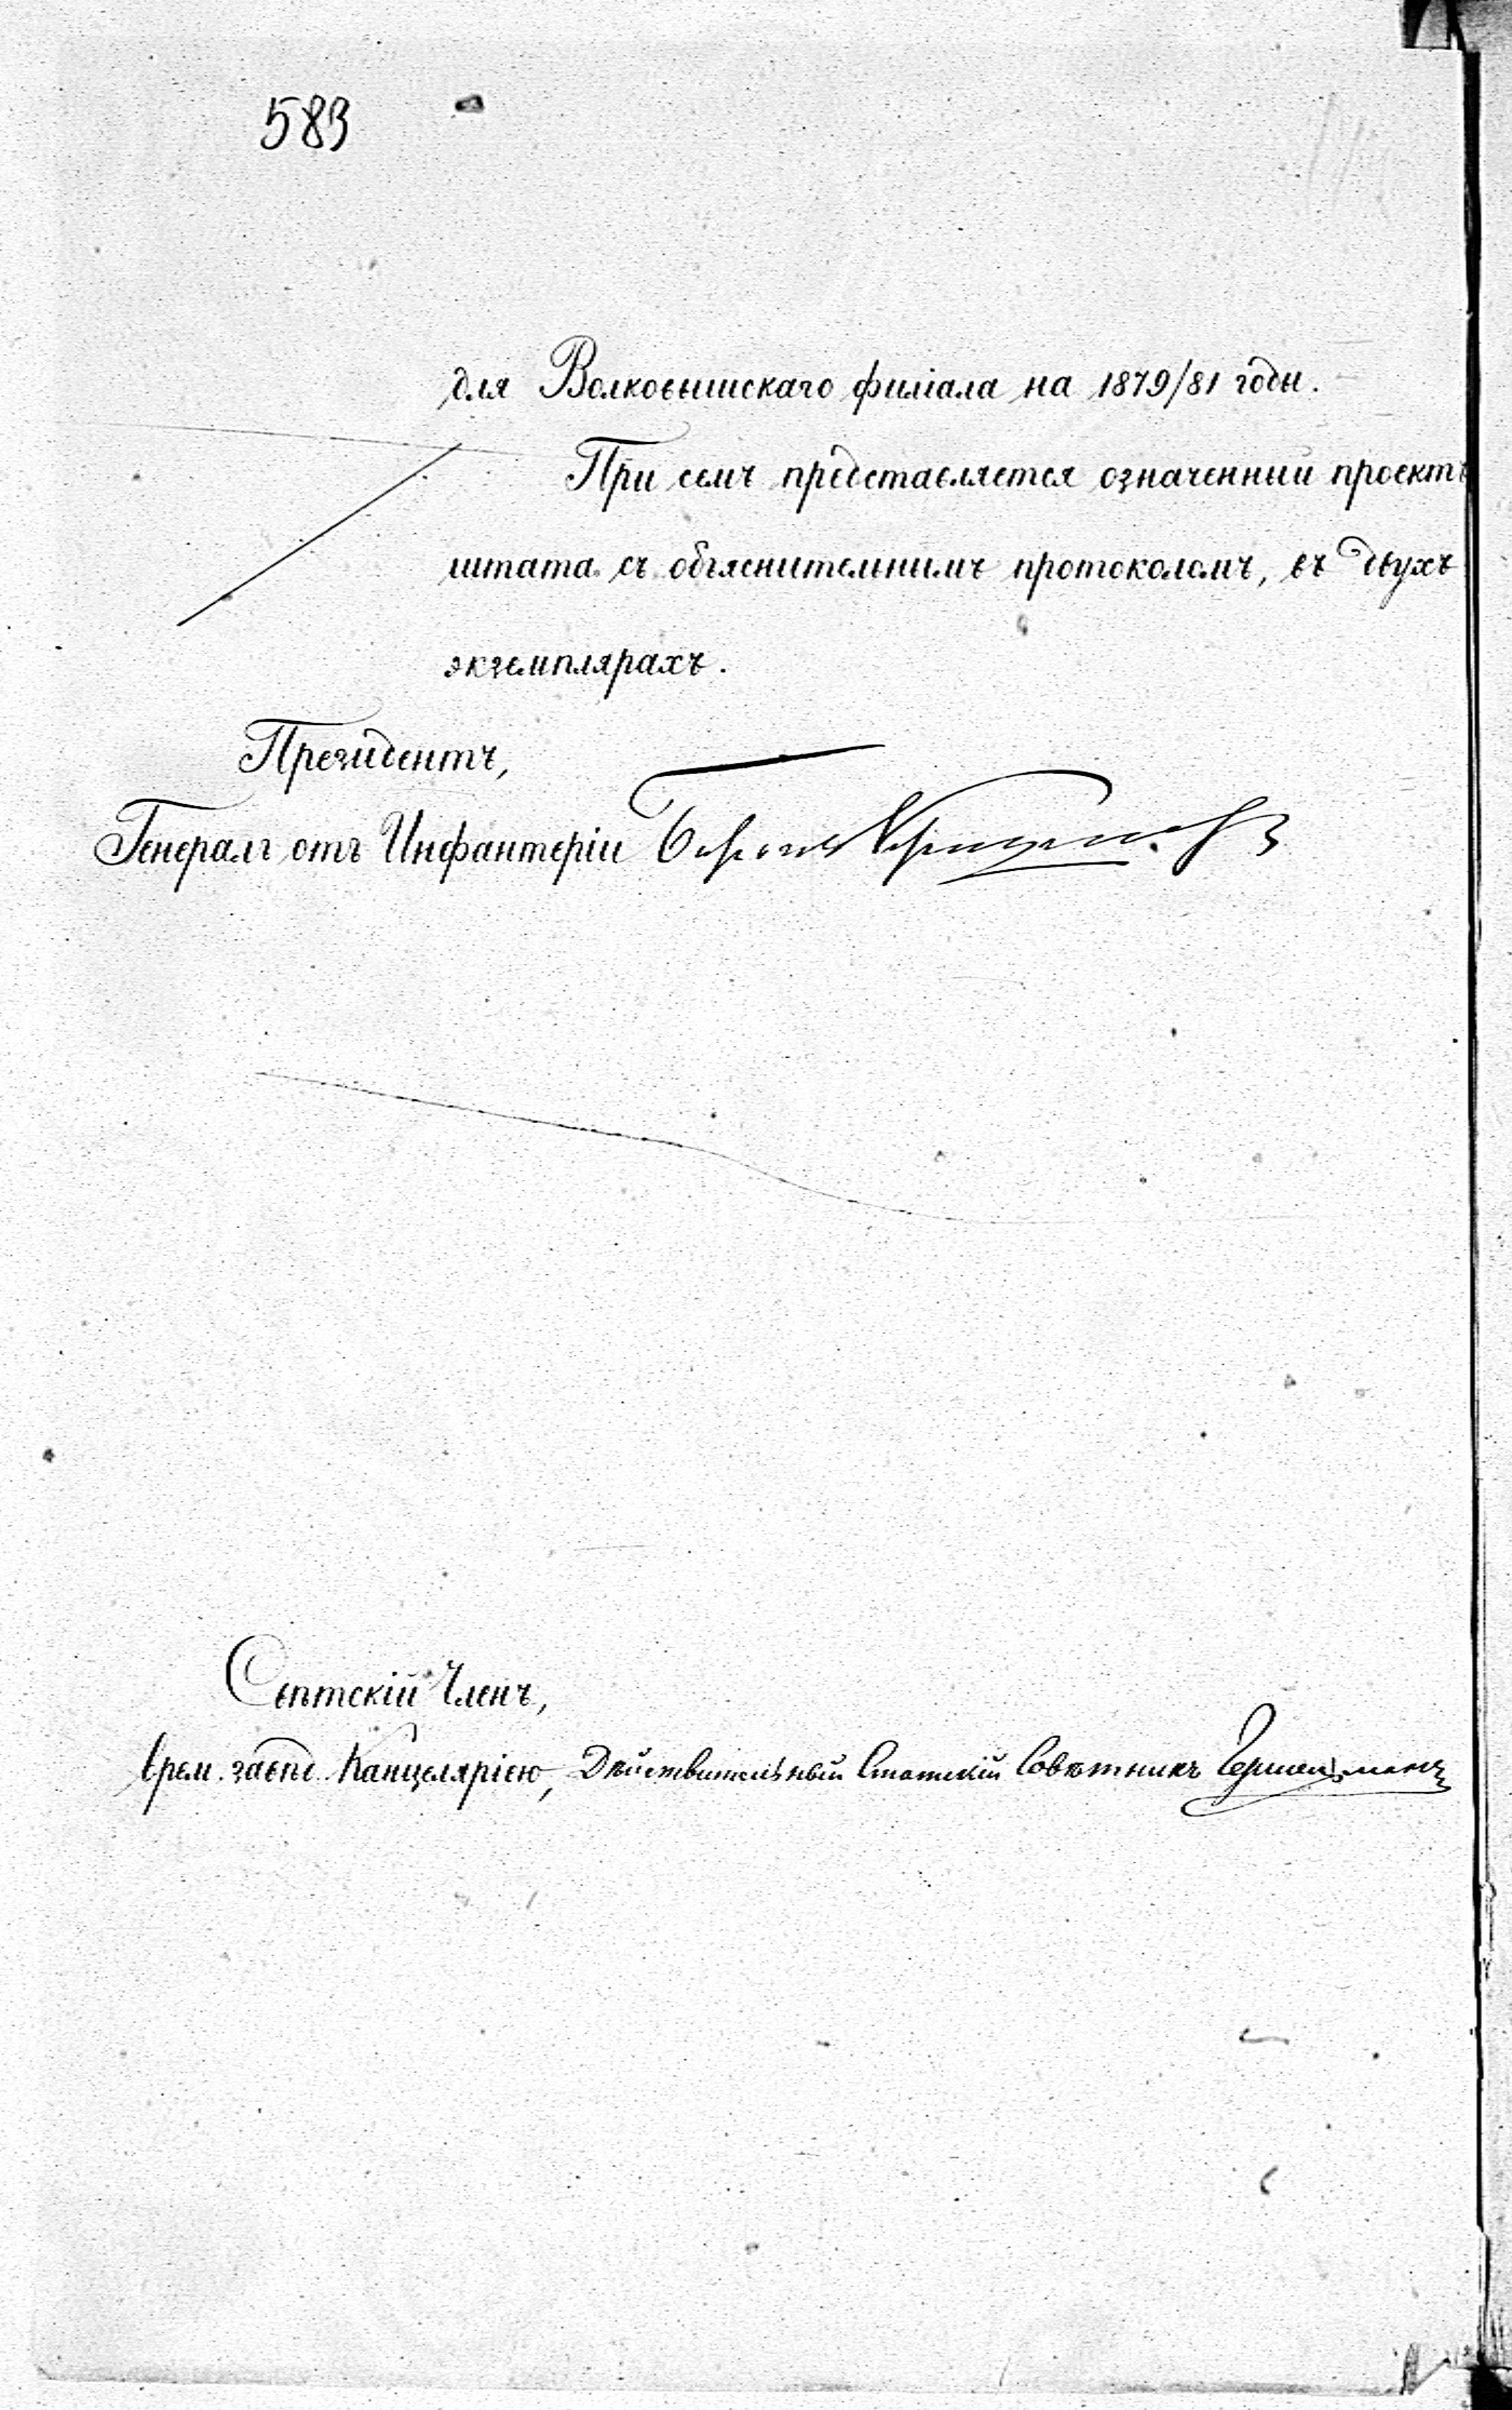 583
для Волковышскаго филіала на 1879/81 годы.
При семъ представляется означенный проектъ
штата съ объяснительнымъ протоколомъ, въ двухъ
экземплярахъ.
Президентъ,
Генералъ отъ Инфантеріи Баронъ
Свѣтскій Членъ,
врем. завѣд. Канцеляріею, Дѣйствительный Статскій Совѣтникъ